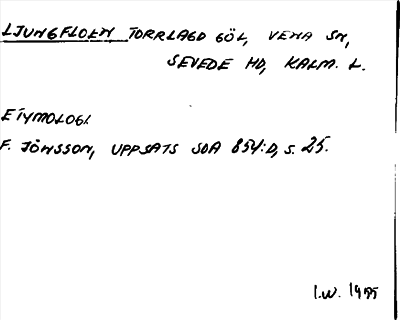 LJUNGFLOEN TORRLAGD GÖL, VENA SN,
SEVEDE HD, KALM. L.
ETYMOLOGI
F. JÖNSSON, UPPSATS SOA 854:D, S. 25.
I.W. 1955